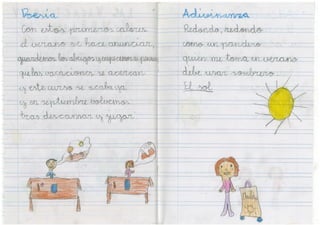 Poesía
Con estos primeros calores
el verano se hace anunciar,
guardemos los abrigos y
que las vacaciones se acercan
y este curso se acaba ya
y en septiembre volvemos
tras descansar y jugar.
Adivinanza
Redondo, redondo
como un pandero
quien me toma en verano
debe usar sombrero.
El sol